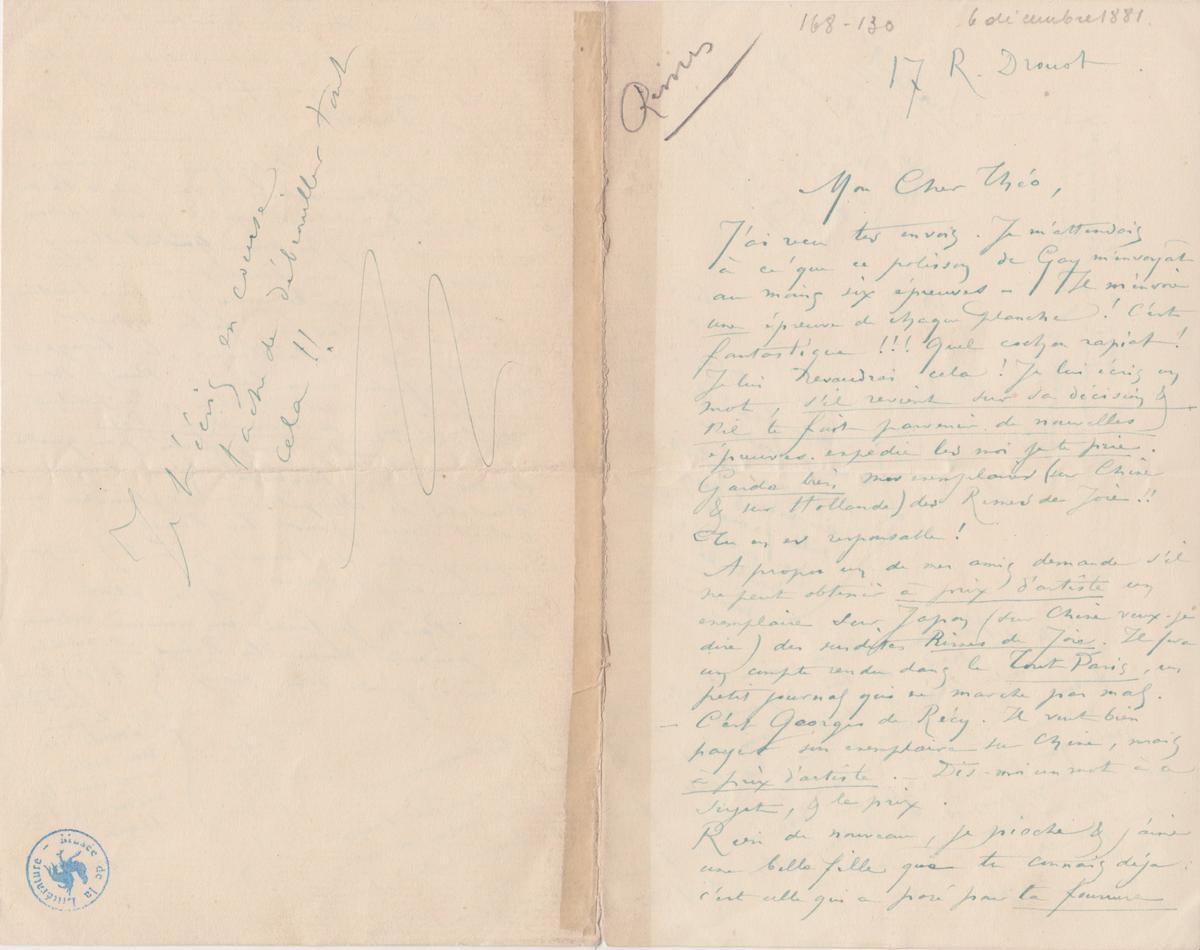 168-130
6 décembre 1881.
17 R. Drouot.
Rimes
Mon Cher Théo,
J'ai reçu tes envois. Je m'attendais
à ce que ce polisson de Gay m'envoyât
au moins six épreuves – Il m'envoie
une épreuve de chaque planche ! C'est
fantastique !!! Quel cochon rapiat !
Je lui revaudrai cela ! Je lui écris un
mot, s'il revient sur sa décision &
s'il te fait parvenir de nouvelles
épreuves. expédie les moi je te prie.
Garde bien mes exemplaires (sur Chine
& sur Hollande) des Rimes de Joie !!
Tu en es responsable !
A propos un de mes amis demande s'il
ne peut obtenir à prix d'artiste un
exemplaire sur Japon (sur Chine veux-je
dire) des susdites Rimes de Joie. Il fera
un compte rendu dans le Tout Paris, un
petit journal qui ne marche pas mal.
– C'est Georges de Récy. Il veut bien
payer son exemplaire sur Chine, mais
à prix d'artiste. – Dis-moi un mot à ce
sujet, & le prix.
Rien de nouveau, je pioche & j'aime
une belle fille que tu connais déjà :
c'est celle qui a posé pour ta fourrure
Je t'écris en course.
tâche de débrouiller tout
cela !!
Musée de la Littérature